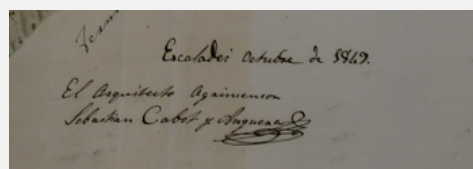 Escaladei octubre de 1849.
El Arquitecto Agrimensor
Sebastian Cabot y